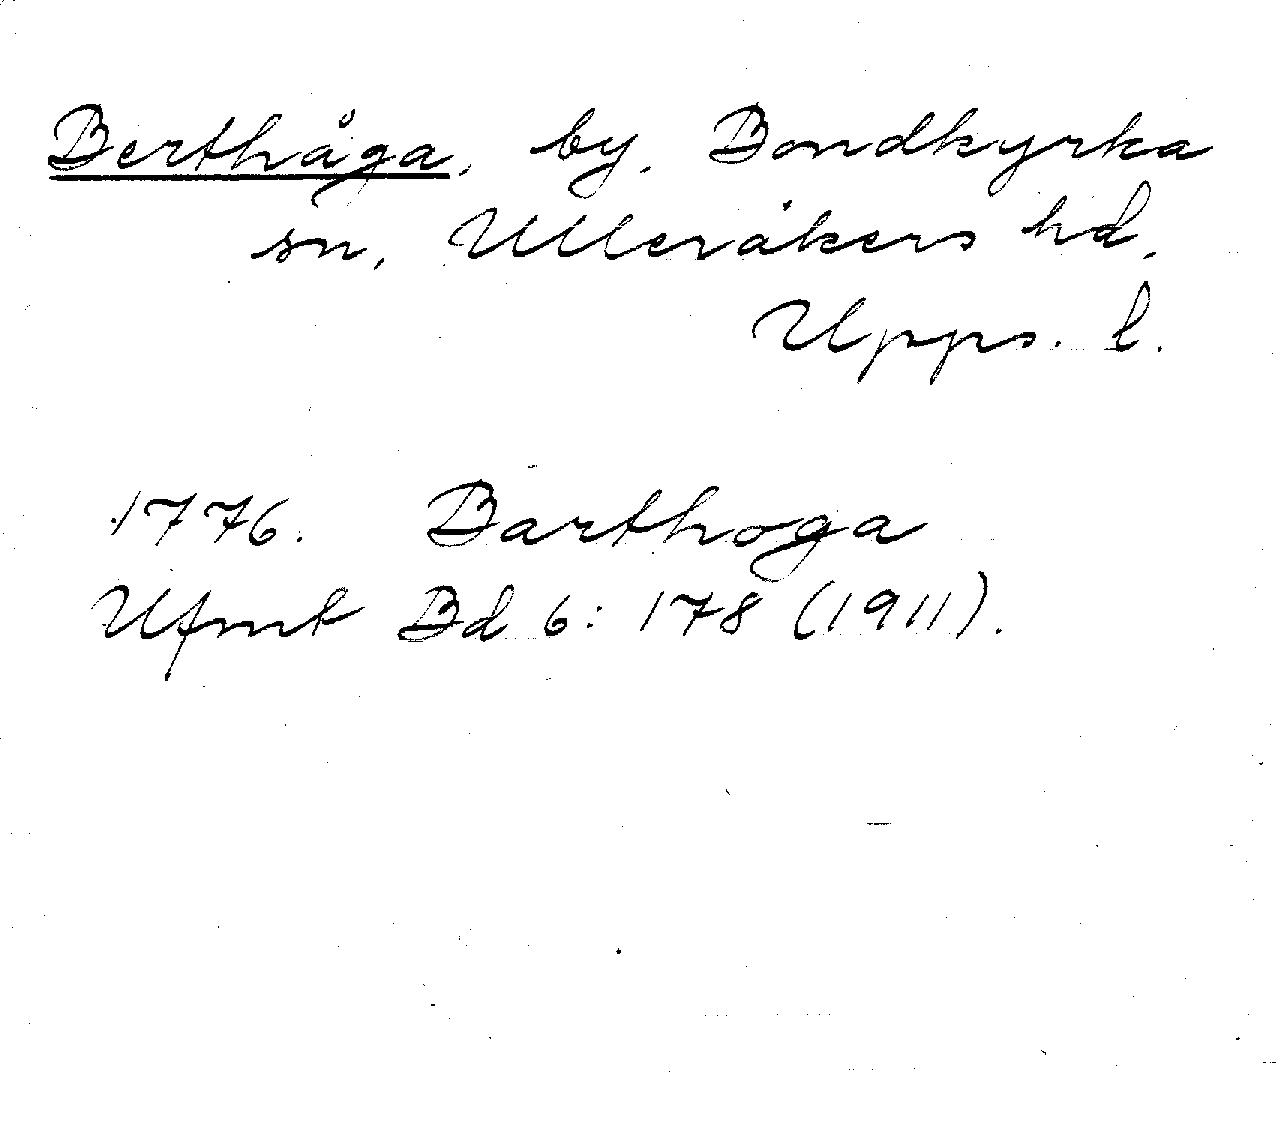 Berthåga, by, Bondkyrka
sn, Ulleråkers hd,
Upps. l.
1776. Barthoga
Ufmt Bd 6: 178 (1911).